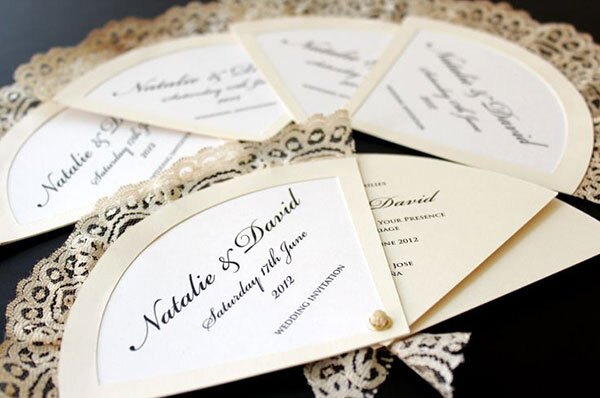 Natalie & David
Saturday 17th June
2012
Natalie & David
Saturday 17th June
2012
Natalie & David
Saturday 17th June
2012
Natalie & David
Saturday 17th June
2012
Natalie & David
Saturday 17th June
2012
WEDDING INVITATION
David
Your Presence
June 2012
Jose